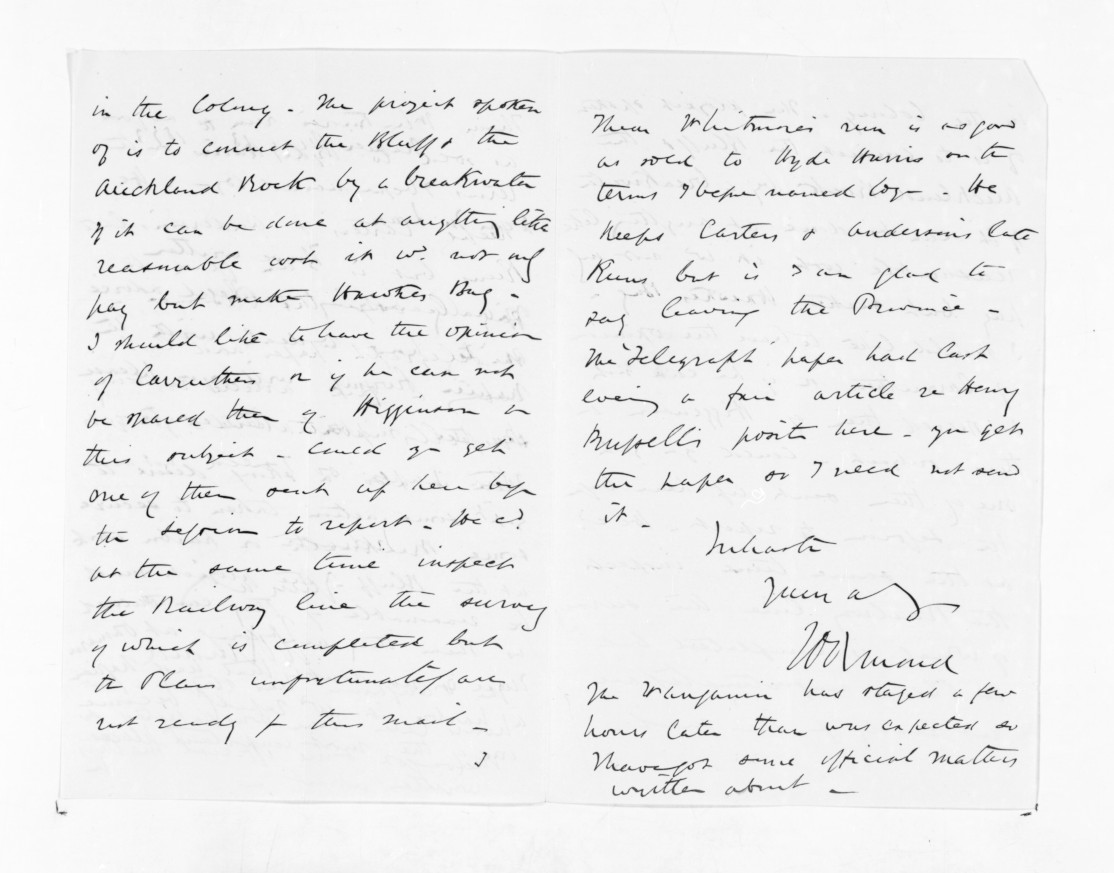 in the Colony - The project spoken
of is to connect the Bluff & the
Auckland Rock by a breakwater
if it can be done at anything like
reasonable cost it wd. not only
pay but make Hawkes Bay -
I should like to have the opinion
of Carruthers or if he can not
be spared then of Higginson on
this subject - Could you get
one of them sent up here before
the session to report - He cd.
at the same time inspect
the Railway line the survey
of which is completed but
the Plans unfortunately are
not ready for this mail -
I
hear Whitmore's run is as good
as sold to Hyde Harris on the
terms I before named to you - He
keeps Carters & Andersons late
Runs but is I am glad to
say leaving the Province -
The 'Telegraph' paper had last
evening a fair article re Henry
Russell's positn here - you get
the paper so I need not send
it -
In haste
Yours
JD Ormond
The Wanganui has stayed a few
hours later than was expected so
I have got some official matters
written about -